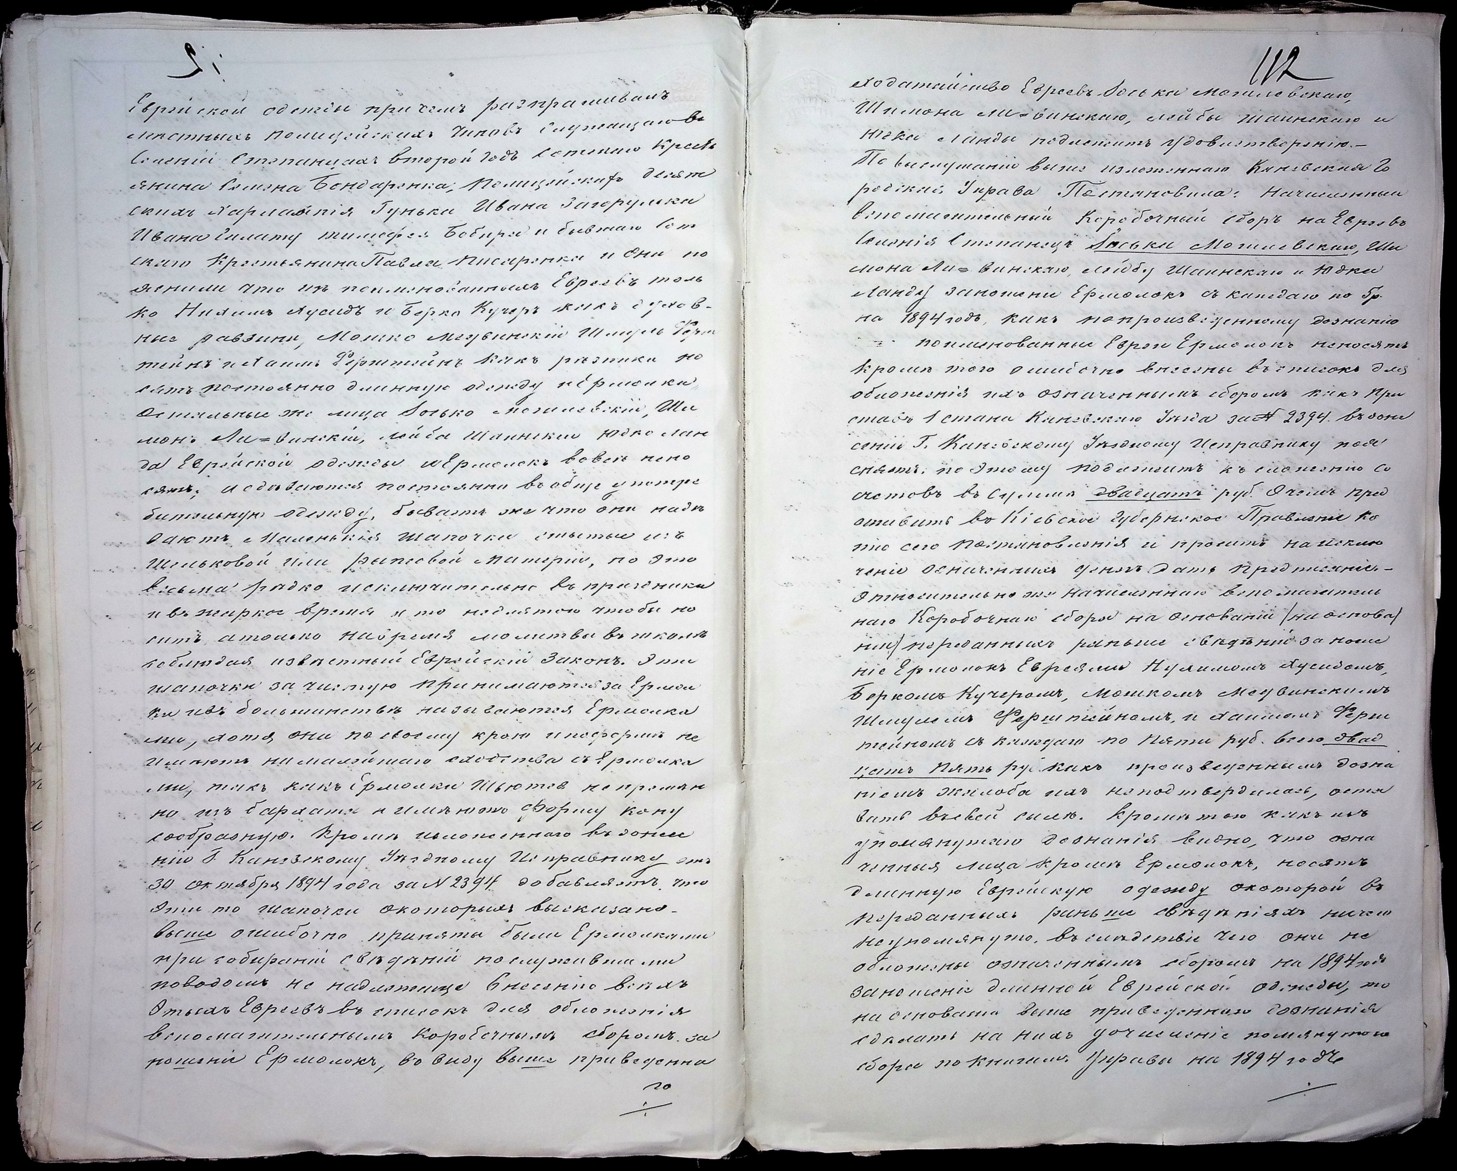 Еврейской одежды причемъ разпрашивалъ
местныхъ полицейскихъ чиновъ служащаго въ
селеніи Степанцахъ второй годъ сотскимъ Кресть
янина Семена Бондаренка, полицейскихъ десят
скихъ Харлампія Гунька Ивана Загорулька
Ивана Силату тимофея Бобиря и бывшаго сот
скаго Крестьянина Павла Писаренка и они по
яснили что изъ поименованныхъ Евреевъ толь
ко Нухимъ Хусидъ и Берко Кучеръ какъ духов-
ные раввины, Мошко Медвинскій Шмуль Ферш
тейнъ и Хаимъ Ферштейнъ какъ резники но
сятъ постоянно длинную одежду и Ермолки
остальные же лица Іосько Могилевскій, Ши
монъ Ли=винскій, Лейба Шаинскій Юдко Лан
да Еврейской одежды и Ермолокъ вовсе не но
сятъ, и одеваются постоянно въ обще употре
бительную одежду, бываетъ же что они наде
ваютъ маленькія шапочки сшытые изъ
шелковой или рыпсовой матеріи, но это
весьма редко исключительно въ праздники
и въ жаркое время и то не для того чтобы но
сить а только на время молитвы въ школе
соблюдая известный Еврейскій Законъ. Эти
шапочки за частую принимаются за Ермол
ки и въ большинстве называются Ермолка
ми, хотя они по своему крою и по форме не
имеютъ ни малейшаго сходства съ Ермолка
ми, такъ какъ Ермолки Шьются непремен
но изъ бархата и имеютъ Форму кону
сообразную. Кроме изложеннаго въ донесе
ніи Г. Каневскому Уездному Исправнику отъ
30 октября 1894 года за N 2394 добавляетъ, что
Эти то шапочки о которыхъ высказано-
выше ошибочно приняты были Ермолками
при собираніи сведеній послужившими
поводомъ не надлежаще внесенію всехъ
Этыхъ Евреевъ въ списокъ для обложенія
вспомагательнымъ коробочнымъ сборомъ за
ношеніе Ермолокъ, во виду выше приведенна
го
112
ходатайство Евреевъ Іоська Могилевскаго,
Шимона Ли=винскаго, Лейбы Шаинскаго и
Юдка Ланды подлежитъ удовлетворенію.-
По выслушаніи выше изложеннаго Каневская Го
родская Управа Постановила: начисленный
вспомагательный Коробочный сборъ на Евреевъ
селенія Степанецъ Іоська Могилевскаго, Ши
мона Ли=винскаго, Лейбу Шаинскаго и Юдка
Ланду за ношеніе Ермолокъ съ каждаго по 5р.
на 1894 годъ, какъ по произведенному дознанію
поименованные Евреи Ермолокъ не носятъ
кроме того ошибочно внесены въ списокъ для
обложенія ихъ означеннымъ сборомъ какъ При
ставъ 1 стана Каневскаго Уезда за N 2394 въ доне
сеніи Г. Каневскому Уездному Исправнику пояс
няетъ. по Этому подлежитъ къ сложенію со
счетовъ въ сумме двадцать руб. О чемъ пред
ставить въ Кіевское Губернское Правленіе ко
пію сего постановленія и просить на исклю
ченіе означенныхъ денегъ дать предписаніе.-
Относительно же начисленнаго вспомагатель
наго Коробочнаго сбора на основаніи /на основа/
ніи/ переданныхъ раньше сведеній за ноше
ніе Ермолокъ Евреями Нухимомъ Хусидомъ,
Беркомъ Кучеромъ, Мошкомъ Медвинскимъ
Шмулемъ Ферштейномъ, и Хаимомъ Ферш
тейномъ съ каждаго по Пяти руб. всего двад
цать Пять руб. какъ произведеннымъ дозна
ніемъ жалоба ихъ не подтвердилась, оста
вить въ своей силе. Кроме того какъ изъ
упомянутаго дознанія видно, что озна
ченныя лица кроме Ермолокъ, носятъ
длинную Еврейскую одежду о которой въ
переданныхъ раньше сведеніяхъ ничего
не упомянуто, въ следствіе чего они не
обложены означеннымъ сборомъ на 1894 годъ
за ношеніе длинной Еврейской одежды, то
на основаніи выше приведеннаго дознанія
сделать на нихъ дочисленіе помянутаго
сбора по книгамъ Управы на 1894 годъ